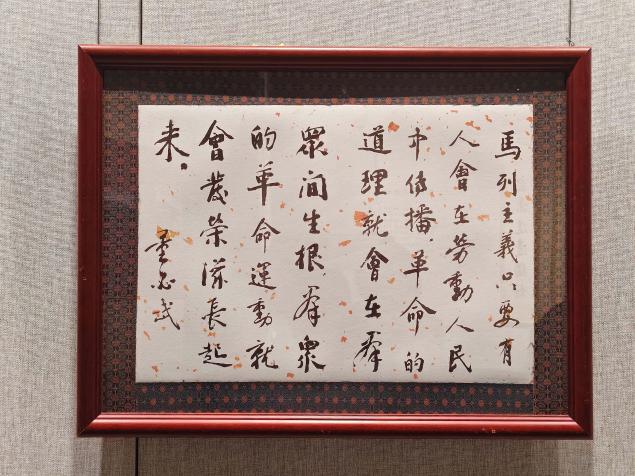 馬列主義只要有
人會在勞動人民
中传播.革命的
道理就會在羣
眾间生根.羣眾
的革命運動就
會發榮滋長起
来。
董必武